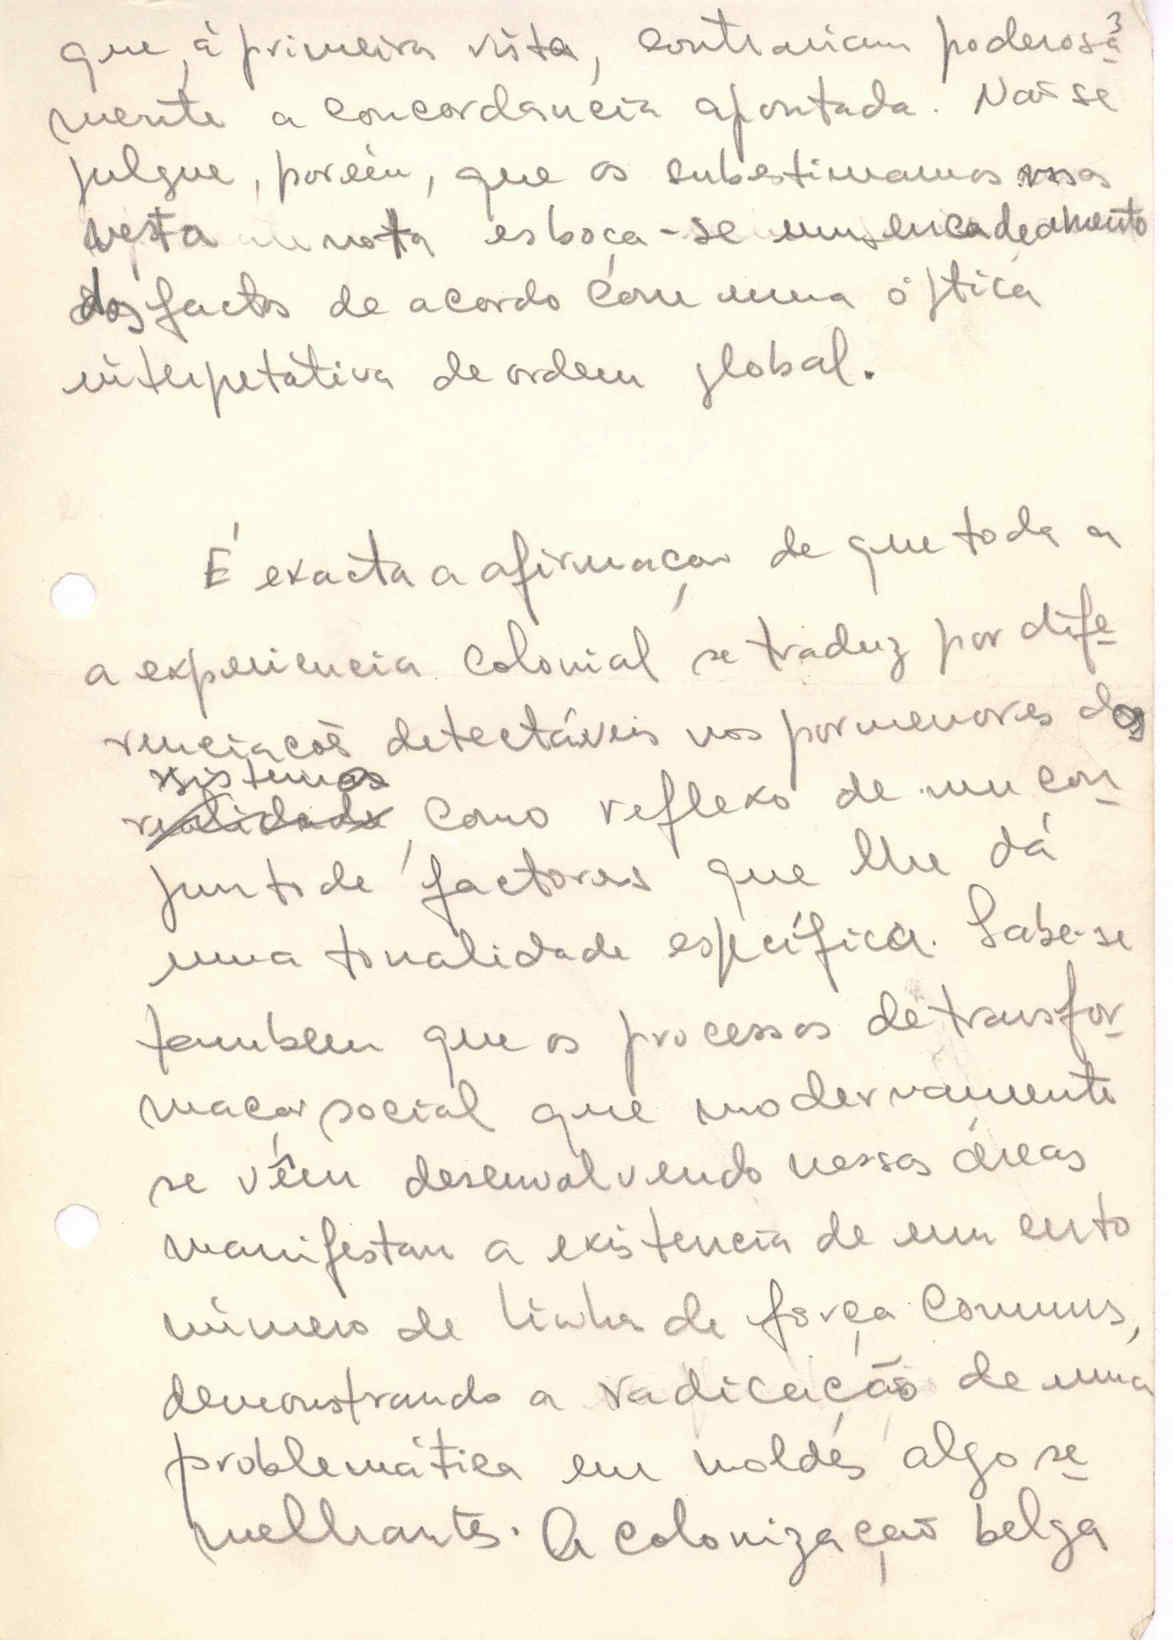 3
que, à primeira vista, contrariam poderosa-
mente a concordancia apontada. Não se
julgue, porém, que os subestimamos mas
nesta nota esboça-se um encadeamento
dos factos de acordo com uma óptica
interpetativa de ordem global.
É exacta a afirmação de que toda a
a experiencia colonial se traduz por dife-
renciações detectáveis nos pormenores dos
sistemas
realidade, como reflexo de um con-
junto de factores que lhe dá
uma tonalidade específica. Sabe-se
tambem que os processos de transfor-
mação social que modernamente
se vêm desenvolvendo nessas áreas
manifestam a existencia de um certo
número de linhas de força comuns,
demonstrando a radicação de uma
problemática em moldes algo se-
melhantes. A colonização belga